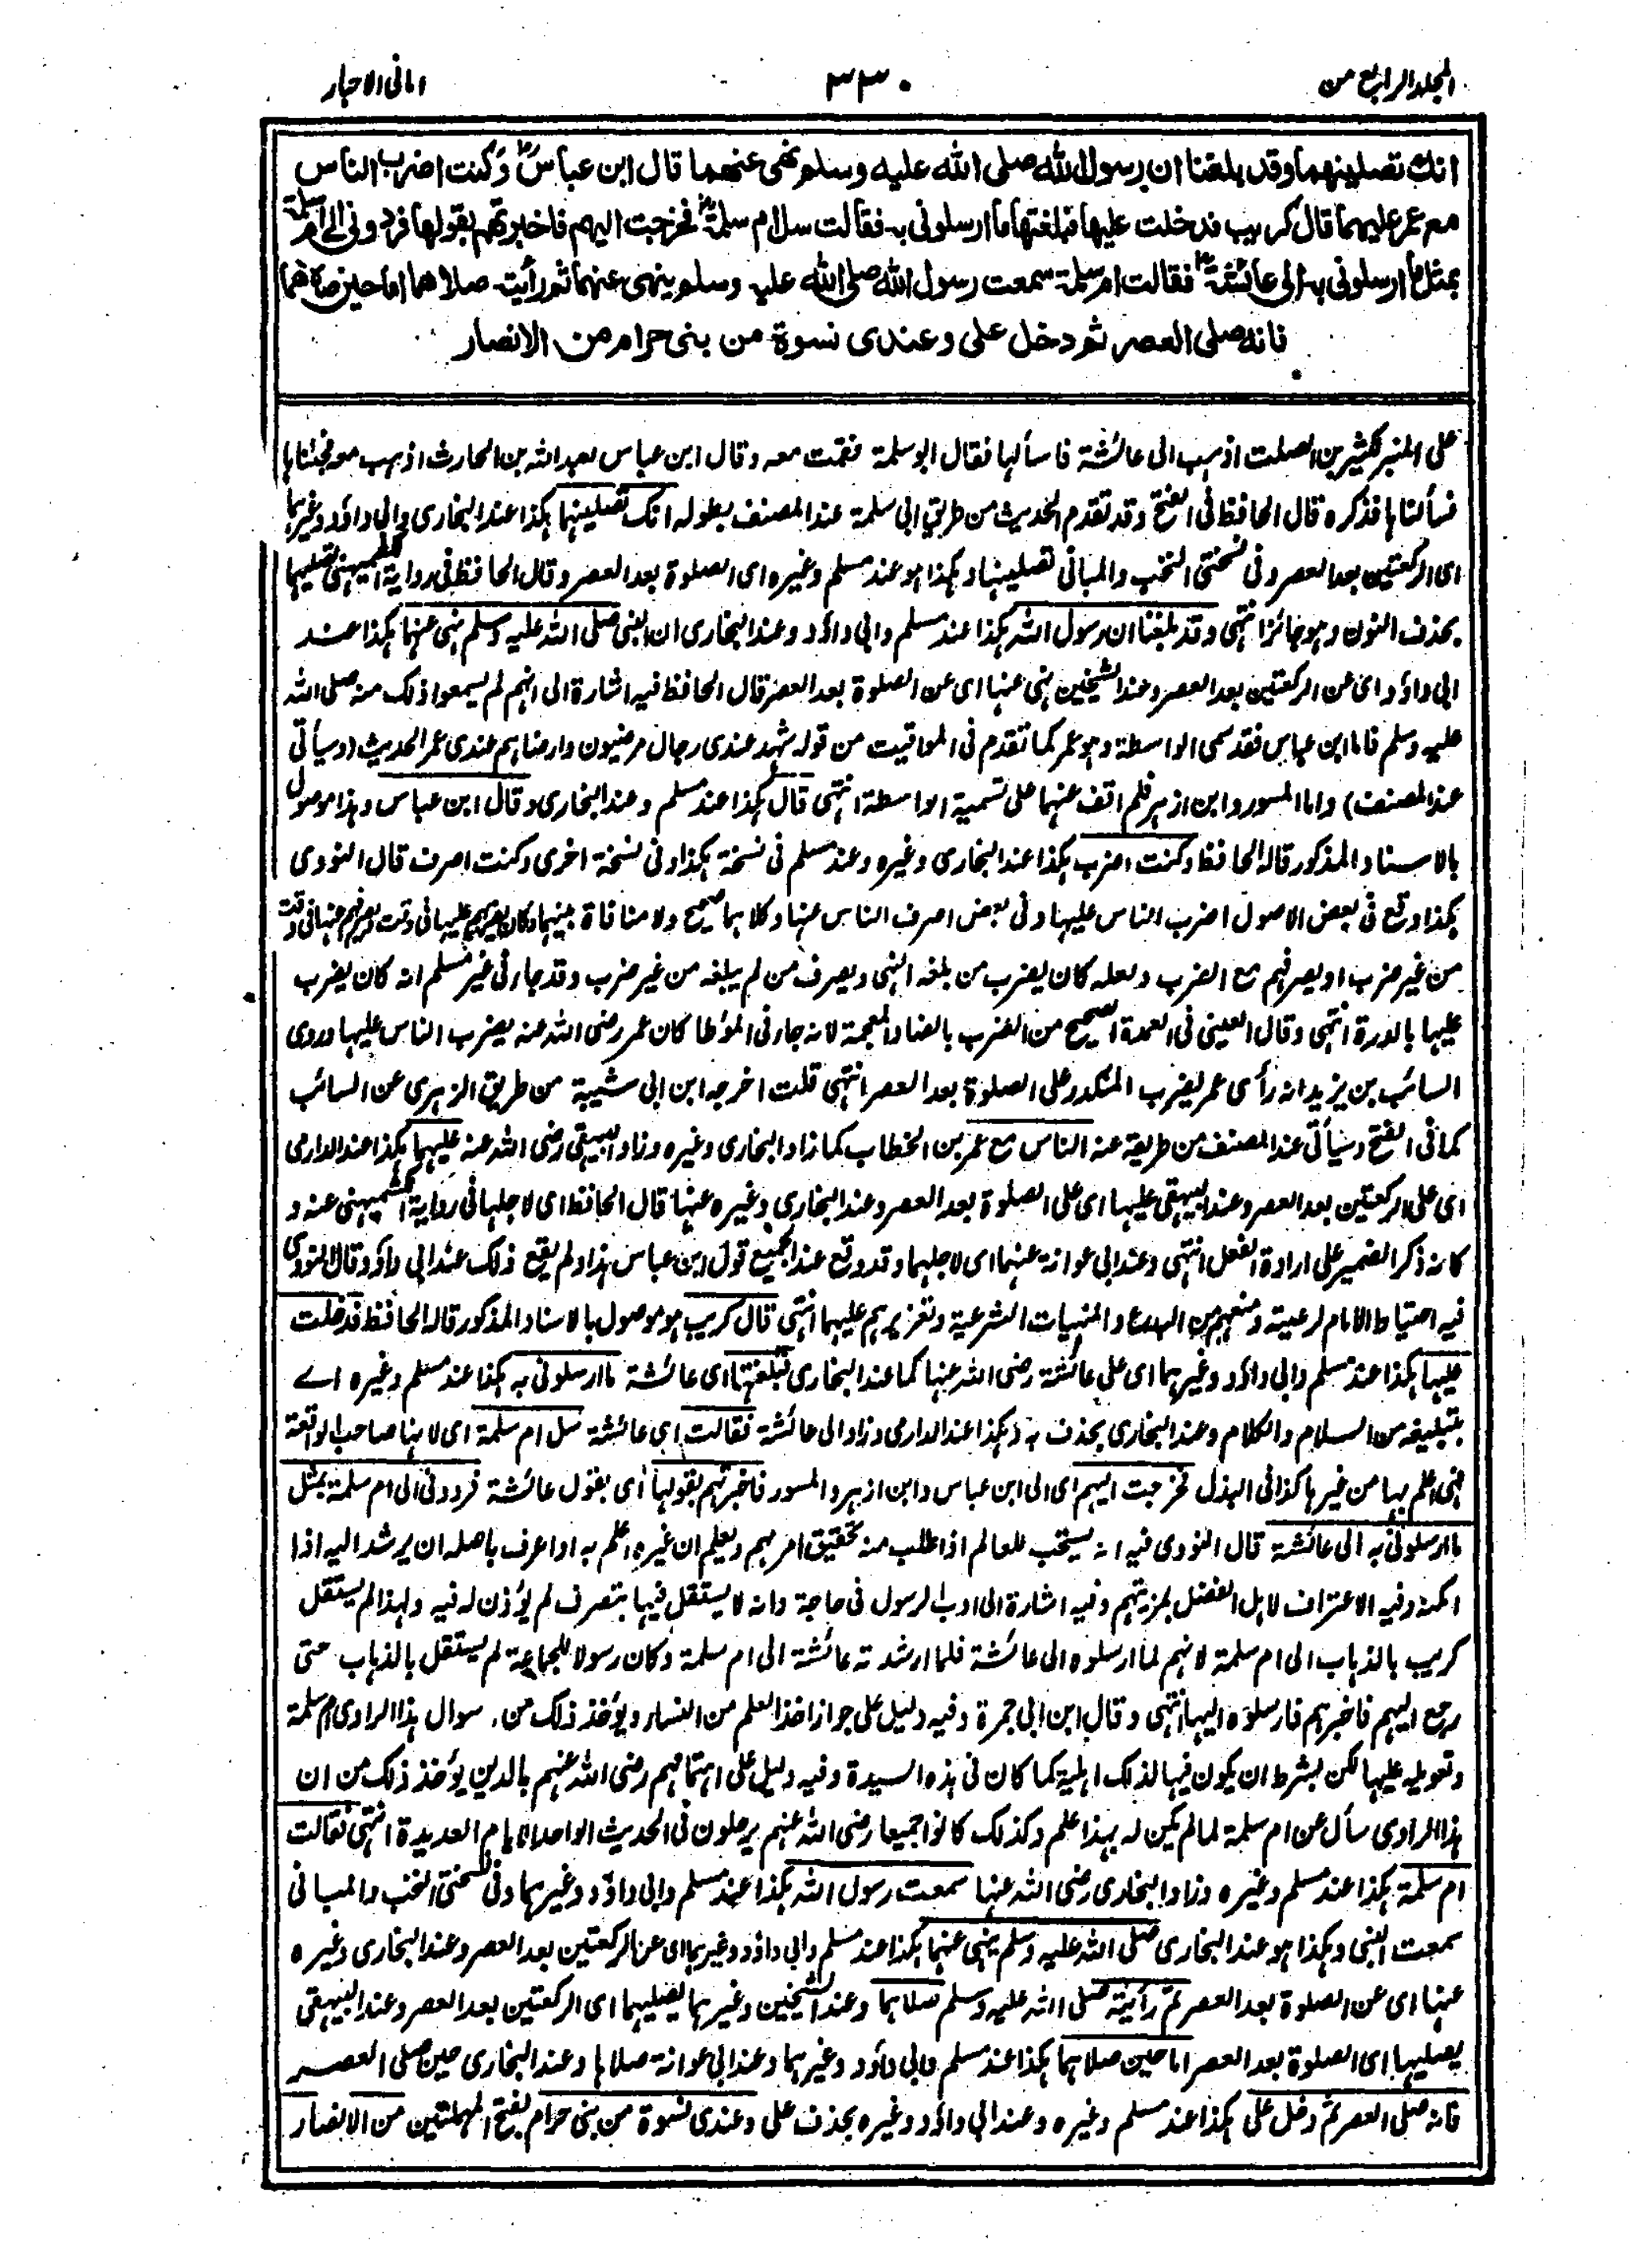 المجلد الرابع من
٣٣٠
امانی الاحبار
انك تصلینهما وقد بلغنا ان رسول الله صلی الله علیه وسلم نهی عنهما قال ابن عباسؓ وکنت اضرب الناس
مع عمر علیهما قال کریب فدخلت علیها فبلغتها ما ارسلونی به فقالت سل ام سلمةؓ فخرجت الیهم فاخبرتهم بقولها فردونی الی ام سلمة
بمثل ما ارسلونی به الی عائشةؓ فقالت ام سلمة سمعت رسول الله صلی الله علیه وسلم ینهی عنهما ثم رأیته صلاهما اما حین صلاهما
فانه صلی العصر ثم دخل علی وعندی نسوة من بنی حرام من الانصار
علی المنبر لکثیر بن الصلت اذهب الی عائشة فاسألها فقال ابو سلمة فقمت معه وقال ابن عباس لعبد الله بن الحارث اذهب معه فجئناها
فسألناها فذکره قال الحافظ فی الفتح وقد تقدم الحدیث من طریق ابی سلمة عند المصنف بطوله انک تصلینهما هکذا عند البخاری وابی داؤد وغیرهما
ای الرکعتین بعد العصر وفی نسختی النخب والمبانی تصلینها وهکذا هو عند مسلم وغیره ای الصلوة بعد العصر وقال الحافظ فی روایة الکشمیهنی تصلیهما
بحذف النون وهو جائز انتهی وقد بلغنا ان رسول الله هکذا عند مسلم وابی داؤد وعند البخاری ان النبی صلی الله علیه وسلم نهی عنهما هکذا عند
ابی داؤد ای عن الرکعتین بعد العصر وعند الشیخین نهی عنها ای عن الصلوة بعد العصر قال الحافظ فیه اشارة الی انهم لم یسمعوا ذلک منه صلی الله
علیه وسلم فاما ابن عباس فقد سمی الواسطة وهو عمر کما تقدم فی المواقیت من قوله شهد عندی رجال مرضیون وارضاهم عندی عمر الحدیث (وسیأتی
عند المصنف) واما المسور وابن ازهر فلم اقف عنهما علی تسمیة الواسطة انتهی قال هکذا عند مسلم وعند البخاری وقال ابن عباس وهذا موصول
بالاسناد المذکور قاله الحافظ وکنت اضرب هکذا عند البخاری وغیره وعند مسلم فی نسخة هکذا وفی نسخة اخری وکنت اصرف قال النووی
هکذا وقع فی بعض الاصول اضرب الناس علیها وفی بعض اصرف الناس عنها وکلاهما صحیح ولا منافاة بینهما وکان یضربهم علیها فی وقت ویصرفهم عنها فی وقت
من غیر ضرب او یصرفهم مع الضرب ولعله کان یضرب من بلغه النهی ویصرف من لم یبلغه من غیر ضرب وقد جاء فی غیر مسلم انه کان یضرب
علیها بالدرة انتهی وقال العینی فی العمدة الصحیح من الضرب بالضاد المعجمة لانه جاء فی المؤطا کان عمر رضی الله عنه یضرب الناس علیها وروی
السائب بن یزید انه رأی عمر یضرب المنکدر علی الصلوة بعد العصر انتهی قلت اخرجه ابن ابی شیبة من طریق الزهری عن السائب
کما فی الفتح وسیأتی عند المصنف من طریقه عنه الناس مع عمر بن الخطاب کما زاد البخاری وغیره وزاد البیهقی رضی الله عنه علیهما هکذا عند الدارمی
ای علی الرکعتین بعد العصر وعند البیهقی علیها ای علی الصلوة بعد العصر وعند البخاری وغیره عنها قال الحافظ ای لاجلها فی روایة الکشمیهنی عنه و
کانه ذکر الضمیر علی ارادة الفعل انتهی وعند ابی عوانة عنهما ای لاجلهما وقد وقع عند الجمیع قول ابن عباس هذا ولم یقع ذلک عند ابی داؤد وقال النووی
فیه احتیاط الامام لرعیته ومنعهم من البدع والمنهیات الشرعیة وتعزیرهم علیهما انتهی قال کریب هو موصول بالاسناد المذکور قاله الحافظ فدخلت
علیها هکذا عند مسلم وابی داؤد وغیرهما ای علی عائشة رضی الله عنها کما عند البخاری فبلغتها ای عائشة ما ارسلونی به هکذا عند مسلم وغیره اے
بتبلیغه من السلام والکلام وعند البخاری بحذف به وهکذا عند الدارمی وزاد الی عائشة فقالت ای عائشة سل ام سلمة ای لانها صاحب الواقعة
فهی اعلم بها من غیرها کذا فی البذل فخرجت الیهم ای الی ابن عباس وابن ازهر والمسور فاخبرتهم بقولها ای بقول عائشة فردونی الی ام سلمة بمثل
ما ارسلونی به الی عائشة قال النووی فیه انه یستحب للعالم اذا طلب منه تحقیق امر مهم ویعلم ان غیره اعلم به او اعرف باصله ان یرشد الیه اذا
امکنه وفیه الاعتراف لاهل الفضل بمزیتهم وفیه اشارة الی ادب الرسول فی حاجة وانه لا یستقل فیها بتصرف لم یؤذن له فیه ولهذا لم یستقل
کریب بالذهاب الی ام سلمة لانهم لما ارسلوه الی عائشة فلما ارشدته عائشة الی ام سلمة وکان رسولا للجماعة لم یستقل بالذهاب حتی
رجع الیهم فاخبرهم فارسلوه الیها انتهی وقال ابن ابی جمرة وفیه دلیل علی جواز اخذ العلم من النساء ویؤخذ ذلک من سوال هذا الراوی ام سلمة
وتعویله علیها لکن بشرط ان یکون فیها لذلک اهلیة کما کان فی هذه السیدة وفیه دلیل علی اهتمامهم رضی الله عنهم بالدین یؤخذ ذلک من ان
هذا الراوی سأل عن ام سلمة لما لم یکن له بهذا علم وکذلک کانوا جمیعا رضی الله عنهم یرحلون فی الحدیث الواحد الایام العدیدة انتهی فقالت
ام سلمة هکذا عند مسلم وغیره وزاد البخاری رضی الله عنها سمعت رسول الله هکذا عند مسلم وابی داؤد وغیرهما وفی نسختی النخب والمبانی
سمعت النبی وهکذا هو عند البخاری صلی الله علیه وسلم ینهی عنهما هکذا عند مسلم وابی داؤد وغیرهما ای عن الرکعتین بعد العصر وعند البخاری وغیره
عنها ای عن الصلوة بعد العصر ثم رأیته صلی الله علیه وسلم صلاهما وعند الشیخین وغیرهما یصلیهما ای الرکعتین بعد العصر وعند البیهقی
یصلیها ای الصلوة بعد العصر اما حین صلاهما هکذا عند مسلم وابی داؤد وغیرهما وعند ابی عوانة صلاها وعند البخاری حین صلی العصر
فانه صلی العصر ثم دخل علی هکذا عند مسلم وغیره وعند ابی داؤد وغیره بحذف علی وعندی نسوة من بنی حرام بفتح المهملتین من الانصار